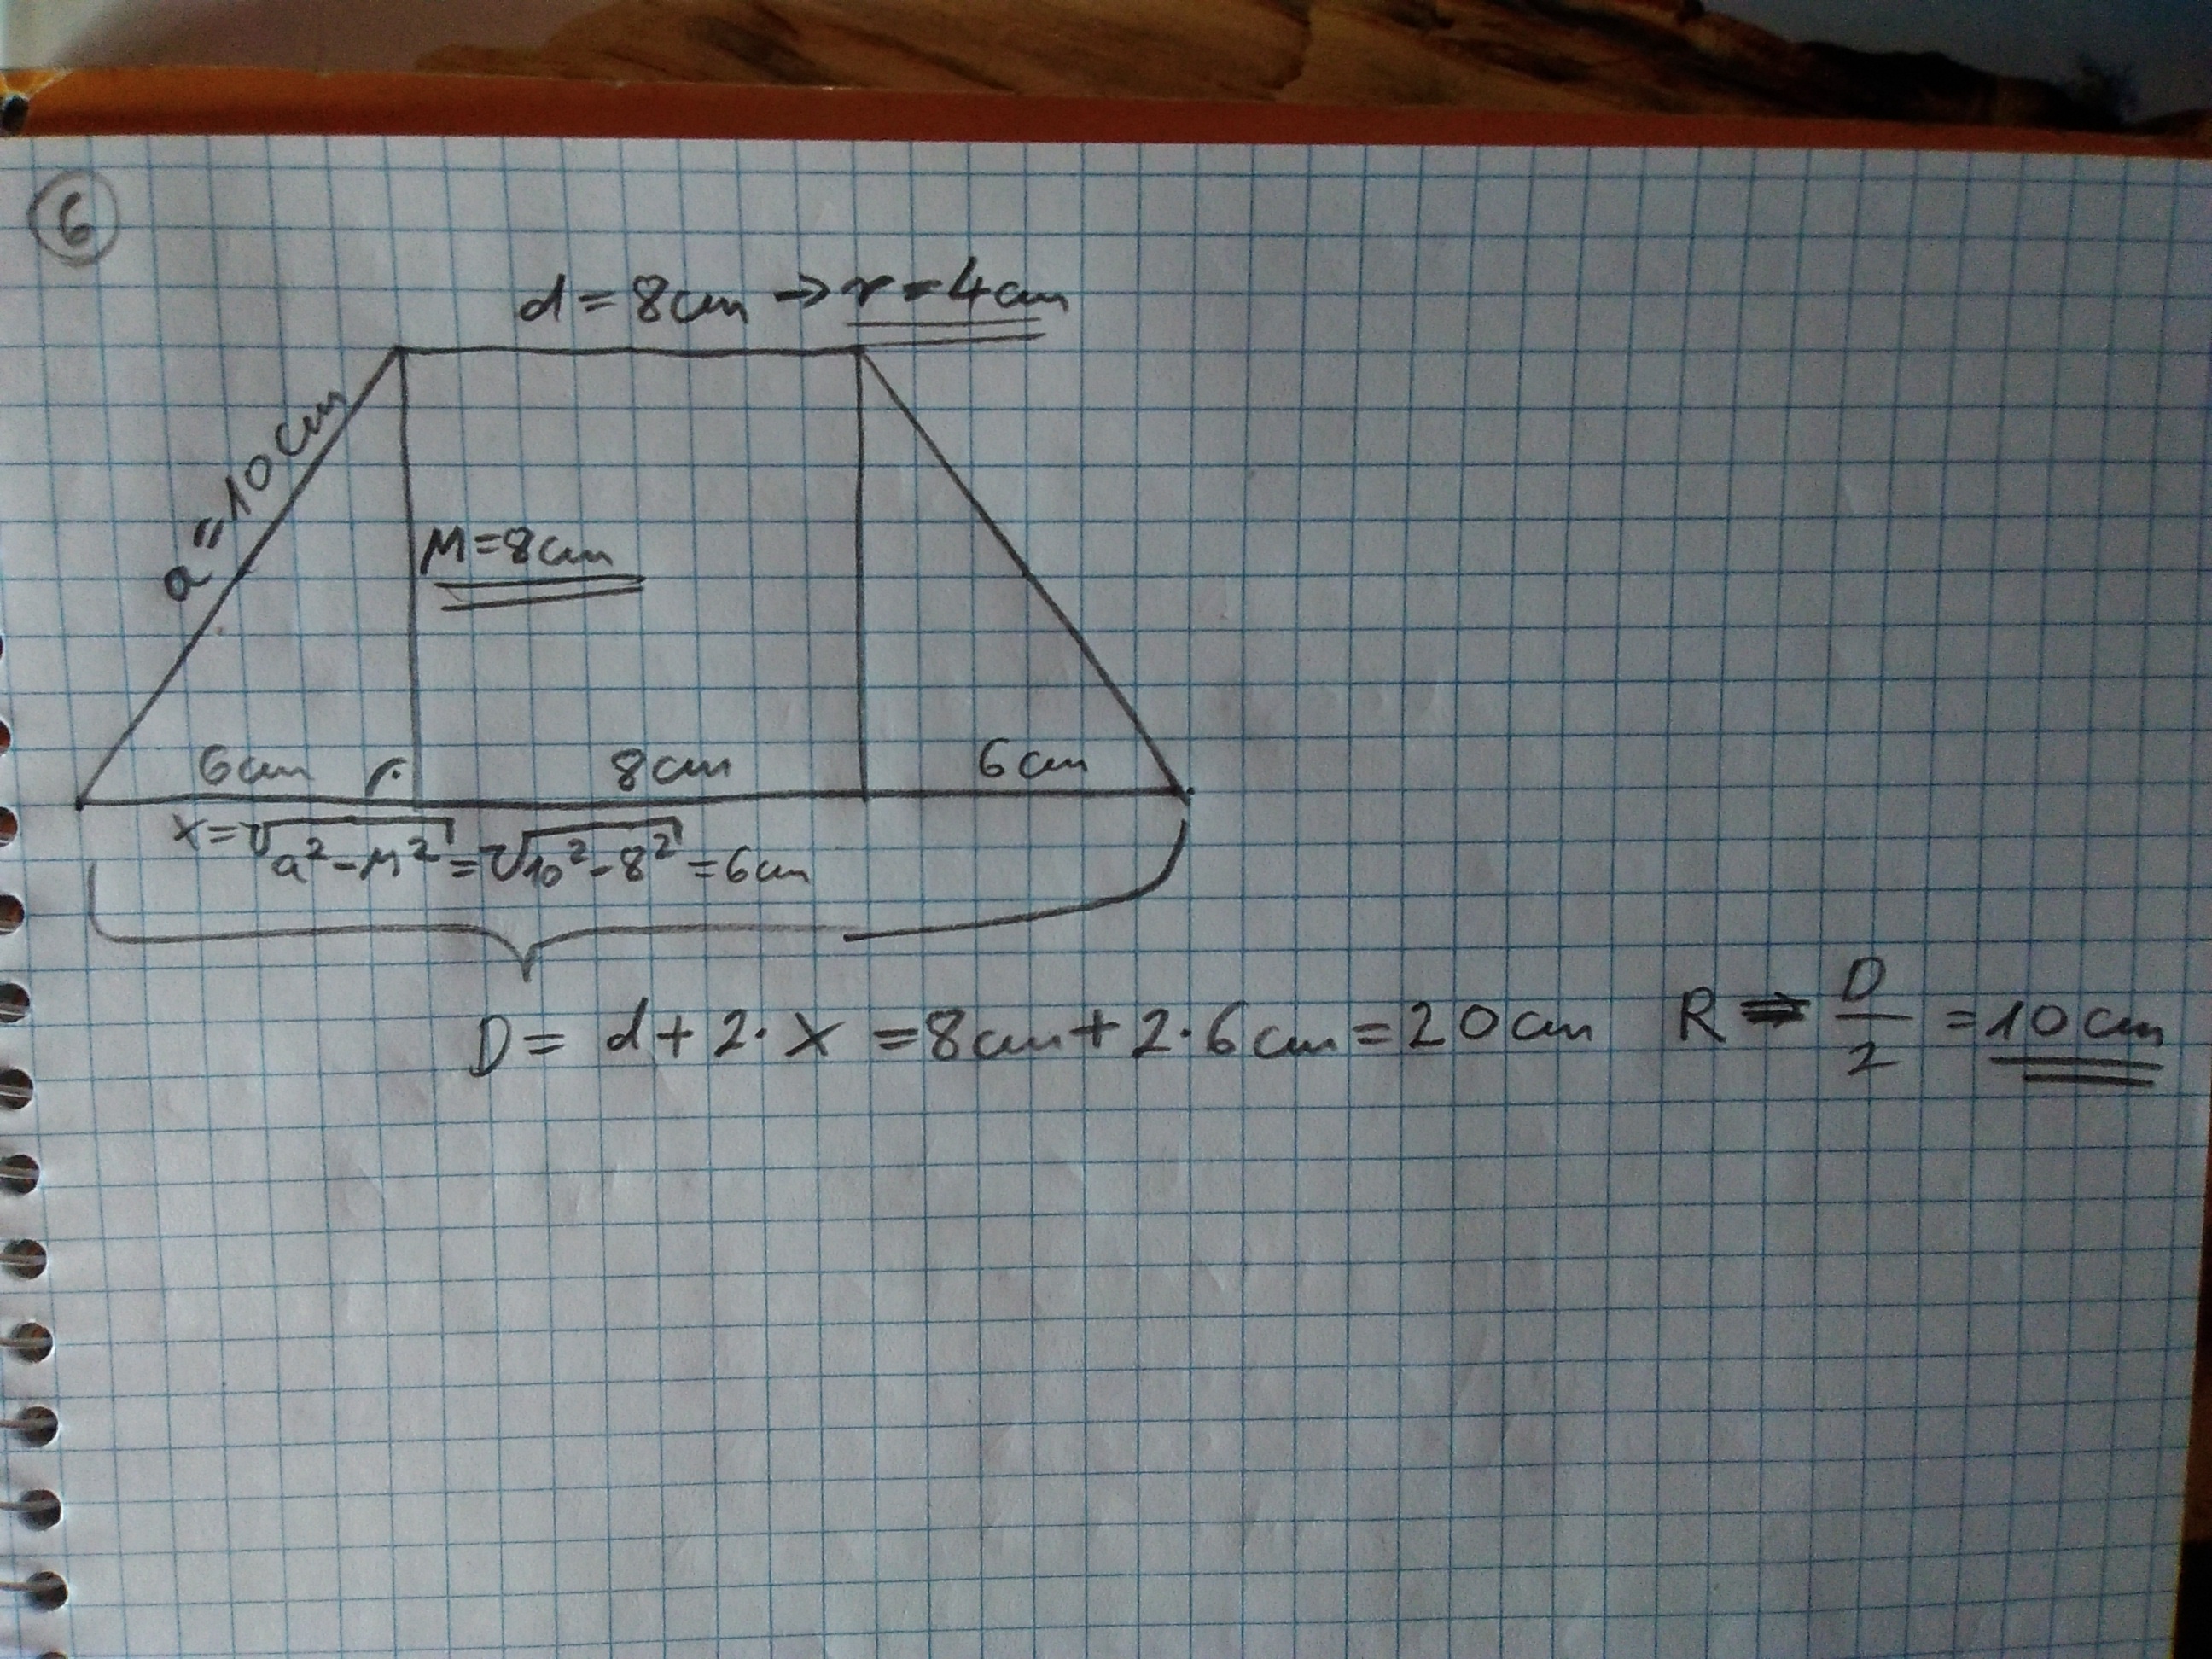 6
d = 8cm → r = 4cm
a = 10cm
M = 8cm
6cm 8cm 6cm
x = √a² - M² = √10² - 8² = 6cm
D = d + 2 · x = 8cm + 2 · 6cm = 20cm R ⇒ D/2 = 10cm